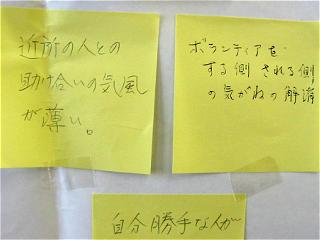 近所の人との
助け合いの気風
が薄い。
ボランティアを
する側 される側
の気がねの解消
自分勝手な人が